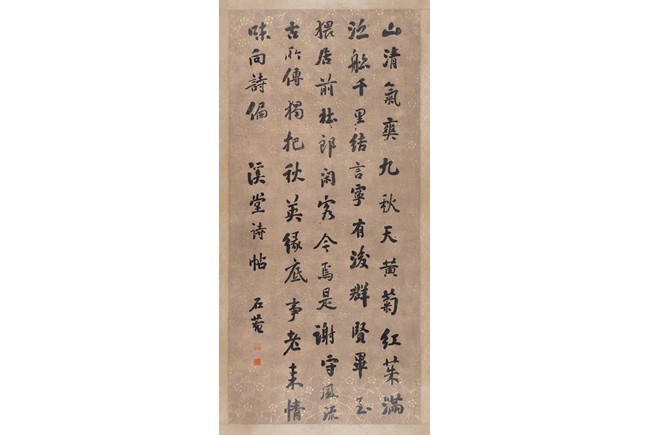 山清氣爽九秋天黃菊紅茱滿
泛船千里結言寧有後群賢畢至
猥居前杜郎閑客今焉是謝守風流
古所傳獨把秋英緣底事老來情
味向詩偏
溪堂诗帖
石菴